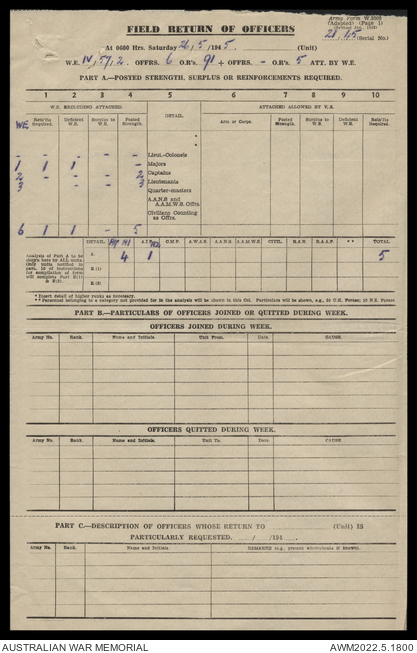 Army Form W.3008
(Adapted) (Page 1)
FIELD RETURN OF OFFICERS
21/45 (Serial No.)
At 0600 Hrs. Saturday 26/5/1945. (Unit)
W.E. IV/57/2. OFFRS. 6 O.R's. 91 + OFFRS. - O.R's. 5 ATT. BY W.E.
PART A.—POSTED STRENGTH, SURPLUS OR REINFORCEMENTS REQUIRED.
1 2 3 4 5 6 7 8 9 10
W.E. EXCLUDING ATTACHED. DETAIL. ATTACHED ALLOWED BY W.E.
WE Rein'fts Required. Deficient W.E. Surplus to W.E. Posted Strength. Arm or Corps. Posted Strength. Surplus to W.E. Deficient W.E. Rein'fts Required.
- - - - Lieut.-Colonels
1 1 1 - - Majors
2 - - - 2 Captains
3 - - 3 Lieutenants
Quarter-masters
A.A.N.S. and A.A.M.W.S. Offrs.
Civilians Counting as Offrs.
6 1 1 - 5
DETAIL. A.I.F. C.M.F. A.W.A.S. A.A.N.S. A.A.M.W.S. CITZ. R.A.N. R.A.A.F. * * TOTAL.
Analysis of Part A to be shown here by ALL units. Only units notified in para. 10 of Instructions for compilation of form will complete Part E(1) & E(2).
A. 4 1 5
E (1)
E (2)
* Insert detail of higher ranks as necessary.
* * Personnel belonging to a category not provided for in the analysis will be shown in this Col. Particulars will be shown, e.g., 20 U.K. Forces; 10 N.E. Forces
PART B.—PARTICULARS OF OFFICERS JOINED OR QUITTED DURING WEEK.
OFFICERS JOINED DURING WEEK.
Army No. Rank. Name and Initials. Unit From. Date. CAUSE.
OFFICERS QUITTED DURING WEEK.
Army No. Rank. Name and Initials. Unit To. Date. CAUSE
PART C.—DESCRIPTION OF OFFICERS WHOSE RETURN TO (Unit) IS
PARTICULARLY REQUESTED. / /194
Army No. Rank. Name and Initials. REMARKS (e.g., present whereabouts if known).
AUSTRALIAN WAR MEMORIAL AWM2022.5.1800